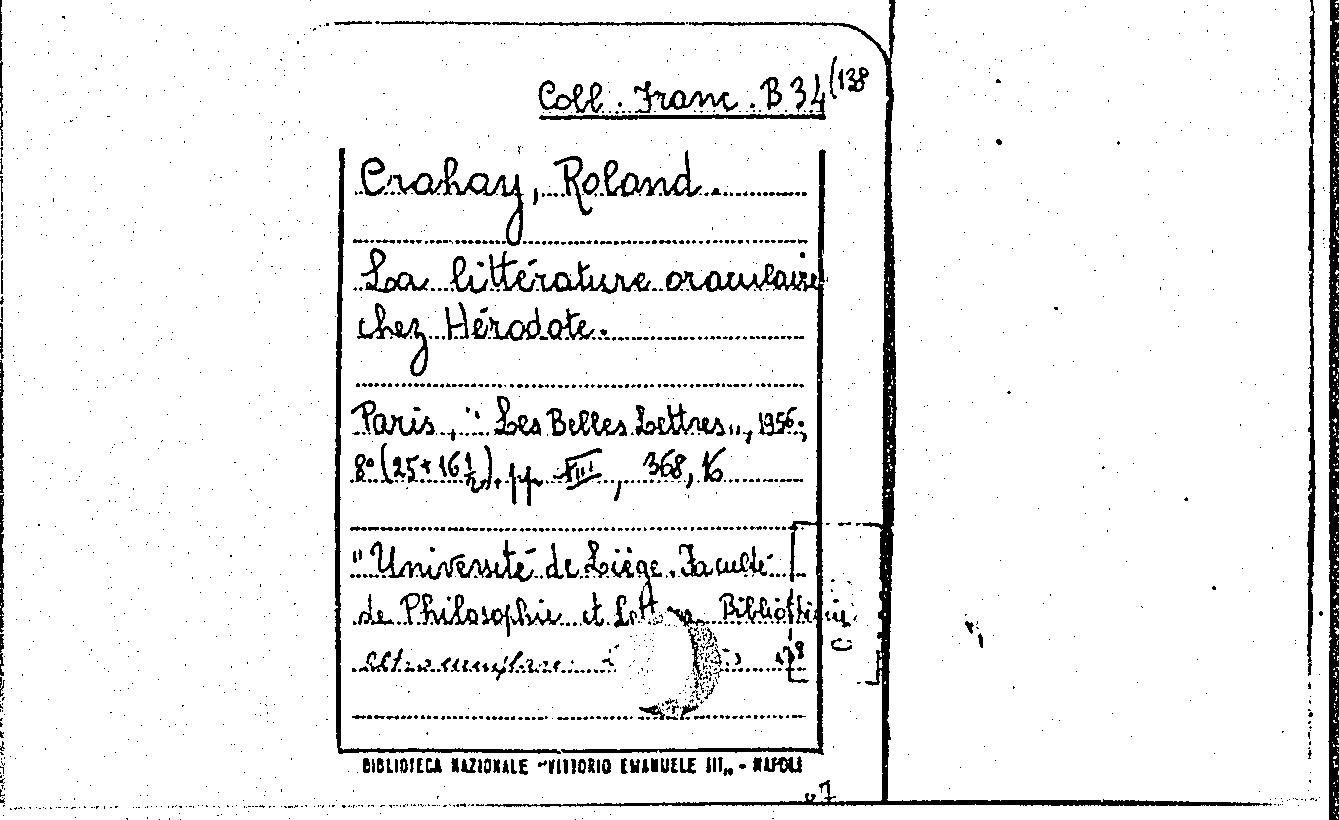 Coll. Franc. B 34 (138
Crahay, Roland.
La littérature oraculaire
chez Hérodote.
Paris, "Les Belles Lettres„, 1956;
8° (25 + 16 1/2). pp. VIII, 368, 16
"Université de Liège. Faculté
de Philosophie et Lettres Bibliothèque
altro esemplare:
BIBLIOTECA NAZIONALE "VITTORIO EMANUELE III„ - NAPOLI